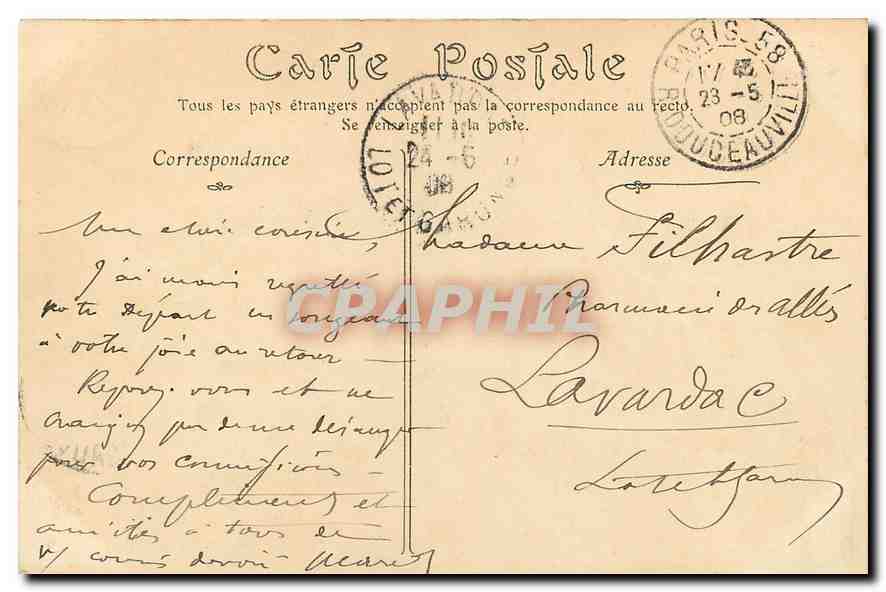 Carte Postale
Tous les pays étrangers n'acceptent pas la correspondance au recto.
Se renseigner à la poste.
Correspondance
Adresse
PARIS - 58
17 45
23 - 5
08
R. DOUDEAUVILLE
LAVARDAC
24 - 5
08
LOT ET GARONNE
Ma chère cousine,
J'ai moins regretté
votre départ en songeant
à votre joie au retour —
Reposez-vous et ne
craignez pas de me déranger
pour vos commissions —
Compliments et
amitiés à tous de
v/ cousin dévoué
Madame Filhastre
Pharmacie des allées
Lavardac
Lot et Garonne
CPAPHIL